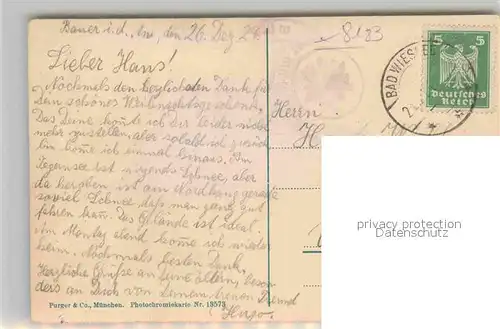 Bauer i. d. Au, den 26. Dez. 24.
8183
Lieber Hans!
Nochmals den herzlichsten Dank für
Dein schönes Weihnachtsgeschenk.
Das deine konnte ich dir leider nicht
mehr zustellen, aber sobald ich zurück
bin komme ich einmal hinaus. Am
Tegernsee ist nirgends Schnee, aber
da heroben ist am Nordhang gerade
soviel Schnee daß man ganz gut
fahren kann. Das Gelände ist ideal.
Am Montag abend komme ich wieder
heim. Nochmals besten Dank.
Herzliche Grüße an Deine Eltern, beson-
ders an Dich von Deinem treuen Freund
Hugo.
Herrn
H
BAD WIESSEE
5 5
Deutsches
Reich
privacy protection
Datenschutz
Purger & Co., München. Photochromiekarte Nr. 13573